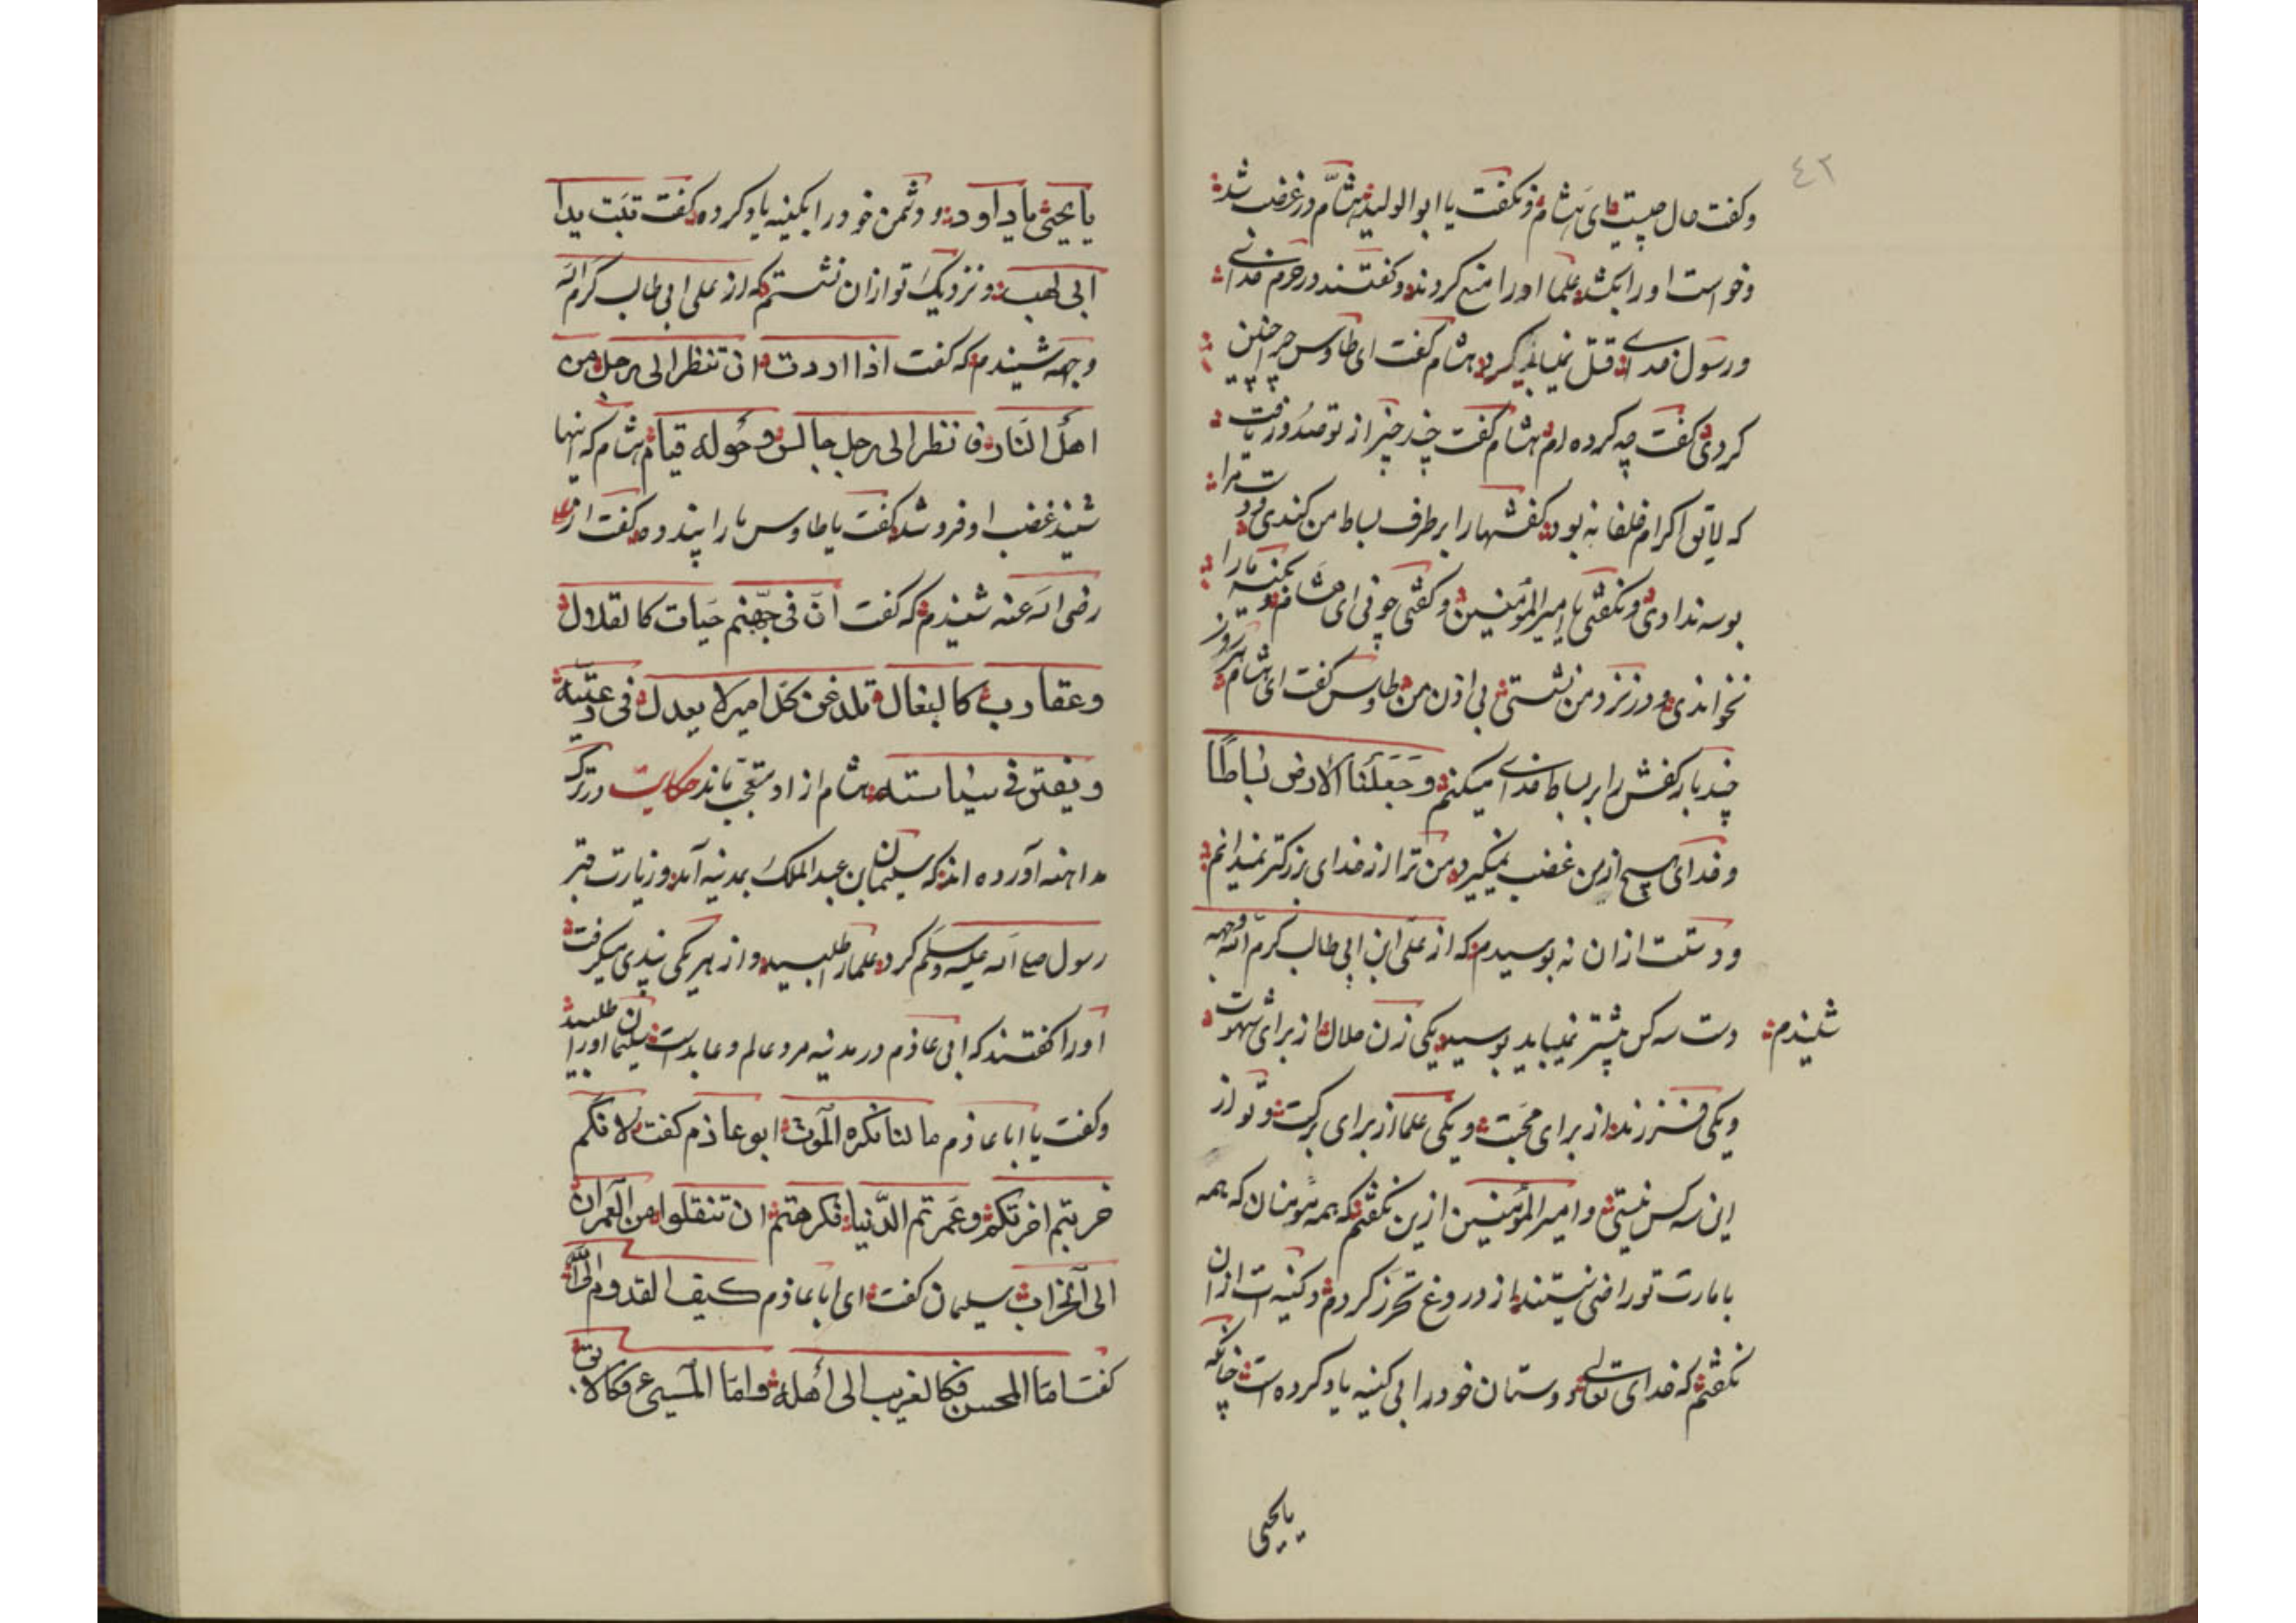 ٤٢
وکفت حال چیست ای هشام و نکفت یا ابو الولید هشام در غضب شد
وخواست اورا بکشد علما اورا منع کردند و کفتند در حرم خدای
ورسول خدای قتل نمیباید کرد هشام کفت ای طاوس چرا چنین
کردی کفت چه کرده ام هشام کفت چند چیز از تو صدور یافت
که لایق اکرام خلفا نه بود کفشهارا بر طرف بساط من کندی و دست مرا
بوسه ندادی و نکفتی یا امیر المؤمنین و کفتی چونی ای هشام و بکنیه مارا
نخواندی و در نزد من نشستی بی اذن من طاوس کفت ای هشام هر روز
چند بار کفش را بر بساط خدای میکنم وَجَعَلْنَا الْاَرْضَ بِسَاطًا
وخدای هیچ ازین غضب نمیکیرد من ترا از خدای بزرکتر نمیدانم
ودستت ازان نه بوسیدم که از علی ابن ابی طالب کرّم الله وجهه
شنیدم دست سه کس بیشتر نمیباید بوسید یکی زن حلال از برای شهوت
ویکی فرزند از برای محبت و یکی علما از برای برکت و تو از
این سه کس نیستی و امیر المؤمنین ازین نکفتم که همه مؤمنان که همه
بامارت تو راضی نیستند از دروغ تحرّز کردم و کنیه ات ازان
نکفتم که خدای تعالی دوستان خودرا بی کنیه یاد کرده است چنانکه
یا یحیی
یا یحیی یا داود و دشمن خودرا بکنیه یاد کرده کفت تبّت یدا
ابی لهب و نزدیک تو ازان نشستم که از علی ابی طالب کرّم الله
وجهه شنیدم که کفت اذا اردت ان تنظر الی رجل من
اهل النار فانظر الی رجل جالس وحوله قیام هشام که اینها
شنید غضب او فرو شد کفت یا طاوس مارا پند ده کفت از علی
رضی الله عنه شنیدم که کفت انّ فی جهنم حیات کالقلال
وعقارب کالبغال تلدغن کل امیر لا یعدل فی رعیّته
ویفتن فی سیاسته هشام از او متعجب ماند حکایت در ترک
مداهنه آورده اند که سلیمان بن عبد الملک بمدینه آمد و زیارت قبر
رسول صلی الله علیه وسلم کرد علمارا طلبید و از هر یکی پندی میکرفت
اورا کفتند که ابی عاذم در مدینه مرد عالم و عابد است سلیمان اورا طلبید
وکفت یا ابا عاذم ما لنا نکره الموت ابو عاذم کفت لانکم
خربتم اخرتکم وعمرتم الدنیا فکرهتم ان تنقلوا من العمران
الی الخراب سلیمان کفت ای ابا عاذم کیف القدوم الی الله
کفت امّا المحسن فکالغریب الی اهله وامّا المسیئ فکالابق